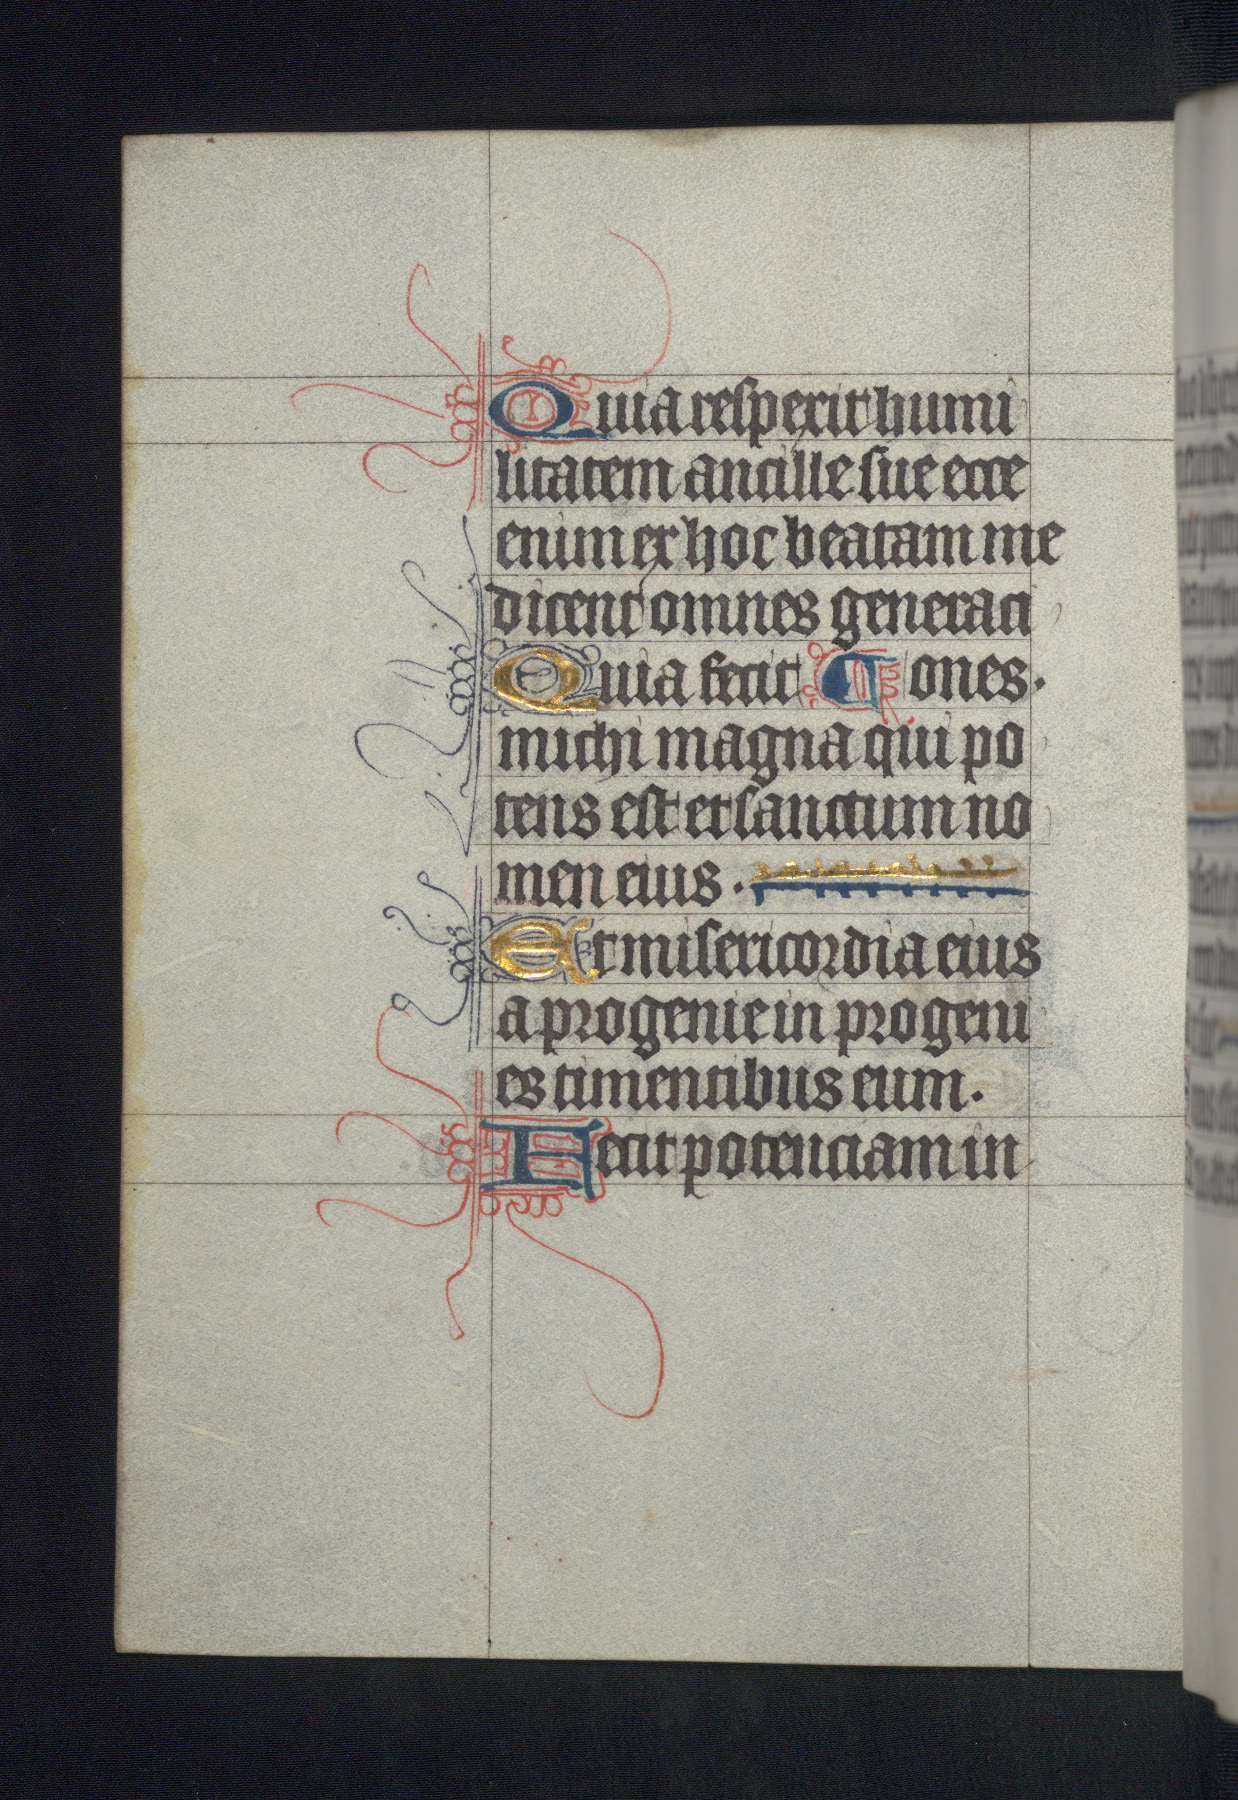 Quia respexit humi
litatem ancille sue ecce
enim ex hoc beatam me
dicent omnes generaci
Quia fecit ¶ ones.
michi magna qui po
tens est et sanctum no
men eius.
Et misericordia eius
a progenie in progeni
es timentibus eum.
Fecit potenciam in